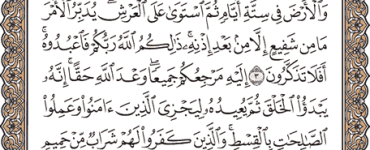 وَٱلْأَرْضَ فِى سِتَّةِ أَيَّامٍ ثُمَّ ٱسْتَوَىٰ عَلَى ٱلْعَرْشِ ۖ يُدَبِّرُ ٱلْأَمْرَ ۖ
مَا مِن شَفِيعٍ إِلَّا مِنۢ بَعْدِ إِذْنِهِۦ ۚ ذَٰلِكُمُ ٱللَّهُ رَبُّكُمْ فَٱعْبُدُوهُ ۚ
أَفَلَا تَذَكَّرُونَ ٣ إِلَيْهِ مَرْجِعُكُمْ جَمِيعًا ۖ وَعْدَ ٱللَّهِ حَقًّا ۚ إِنَّهُۥ
يَبْدَؤُا۟ ٱلْخَلْقَ ثُمَّ يُعِيدُهُۥ لِيَجْزِىَ ٱلَّذِينَ ءَامَنُوا۟ وَعَمِلُوا۟
ٱلصَّٰلِحَٰتِ بِٱلْقِسْطِ ۚ وَٱلَّذِينَ كَفَرُوا۟ لَهُمْ شَرَابٌ مِّنْ حَمِيمٍ